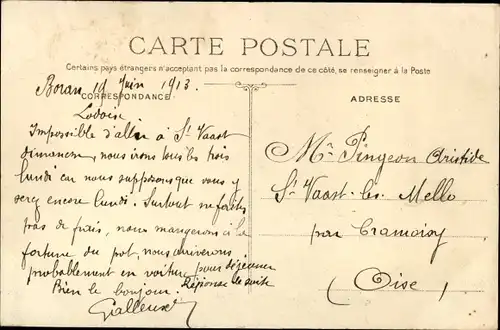 CARTE POSTALE
Certains pays étrangers n'acceptent pas la correspondance de ce côté, se renseigner à la Poste
Boran 19 Juin 1913.
CORRESPONDANCE
Impossible d'aller à St Vaast
dimanche, nous irons tous les trois
lundi car nous supposons que vous y
serez encore lundi. Surtout ne faites
pas de frais, nous mangerons à la
fortune du pot, nous arriverons
probablement en voiture pour déjeuner
Réponse de suite
Bien le bonjour.
ADRESSE
Mr Pingeon Aristide
St Vaast-les-Mello
par Cramoisy
(Oise)